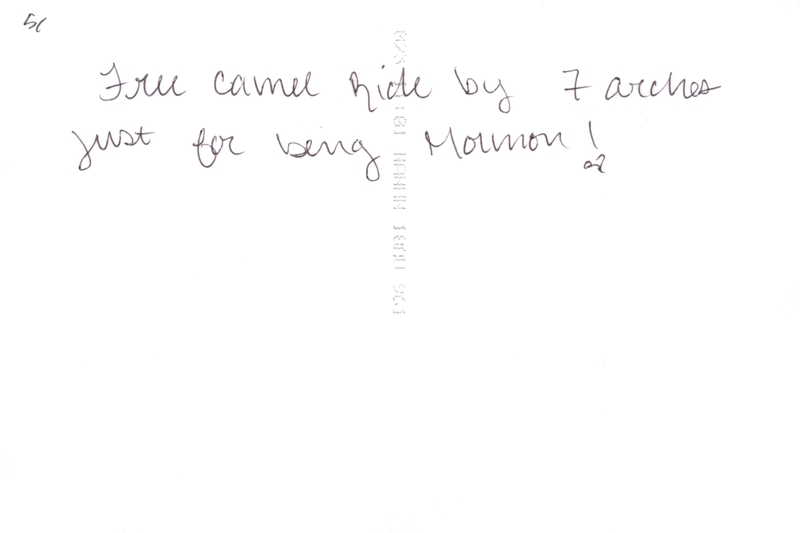 56
Free camel Ride by 7 arches
just for being Mormon!